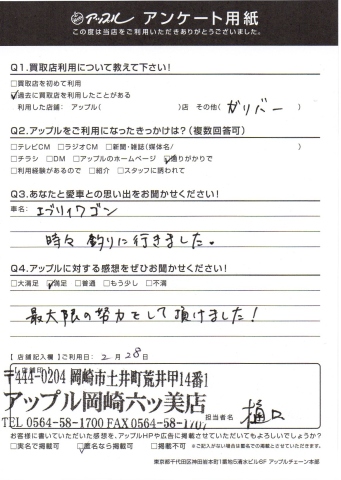 アップル アンケート用紙
この度は当店をご利用いただきありがとうございました。
Q1.買取店利用について教えて下さい!
□買取店を初めて利用
☑過去に買取店を利用したことがある
利用した店舗: アップル( )店 その他( ガリバー )
Q2.アップルをご利用になったきっかけは?(複数回答可)
□テレビCM □ラジオCM □新聞・雑誌(媒体名/ )
□チラシ □DM □アップルのホームページ ☑通りがかりで
□利用経験があるので □紹介 □スタッフに誘われて
Q3.あなたと愛車との思い出をお聞かせください!
車名: エブリイワゴン
時々 釣りに行きました。
Q4.アップルに対する感想をぜひお聞かせください!
□大満足 ☑満足 □普通 □もう少し □不満
最大限の努力をして頂けました!
【店舗記入欄】ご利用日: 2月28日
【店舗印】
〒444-0204 岡崎市土井町荒井甲14番1
アップル岡崎六ッ美店
TEL 0564-58-1700 FAX 0564-58-1707
担当者名 樋口
お客様に書いていただいた感想を、アップルHPや広告に掲載させていただいてもよろしいでしょうか?
□実名で掲載可 ☑匿名なら掲載可 □掲載不可 ※ご記入がない場合は匿名での掲載とさせていただきます。
東京都千代田区神田岩本町1番地5清水ビル6F アップルチェーン本部